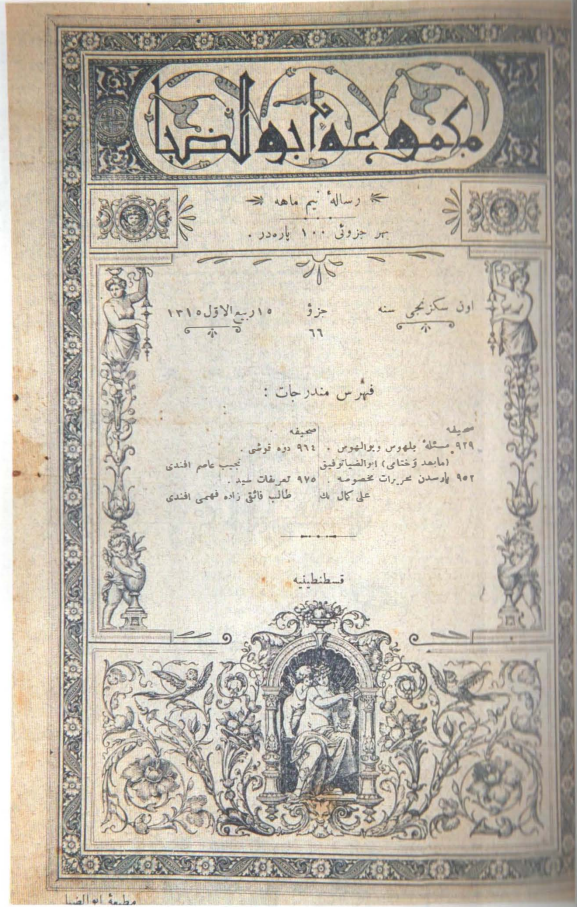 مجموعهٔ ابوالضيا
رسالهٔ نيم ماهه
بهر جزوئى ۱۰۰ پاره‌در .
اون سكزنجى سنه
جزؤ
۶۶
۱۵ ربيع الاول ۱۳۱۵
فهرس مندرجات :
صحيفه
۹۲۹ مسئلهٔ بلهوس وبوالهوس .
(مابعد وختامى) ابوالضيا توفيق
۹۵۲ پارسدن محررات مخصوصه .
على كمال بك
صحيفه
۹۶۴ دوه قوشى .
نجيب عاصم افندى
۹۷۵ تعريفات سيد .
طالب فائق زاده فهمى افندى
قسطنطينيه
مطبعهٔ ابوالضيا